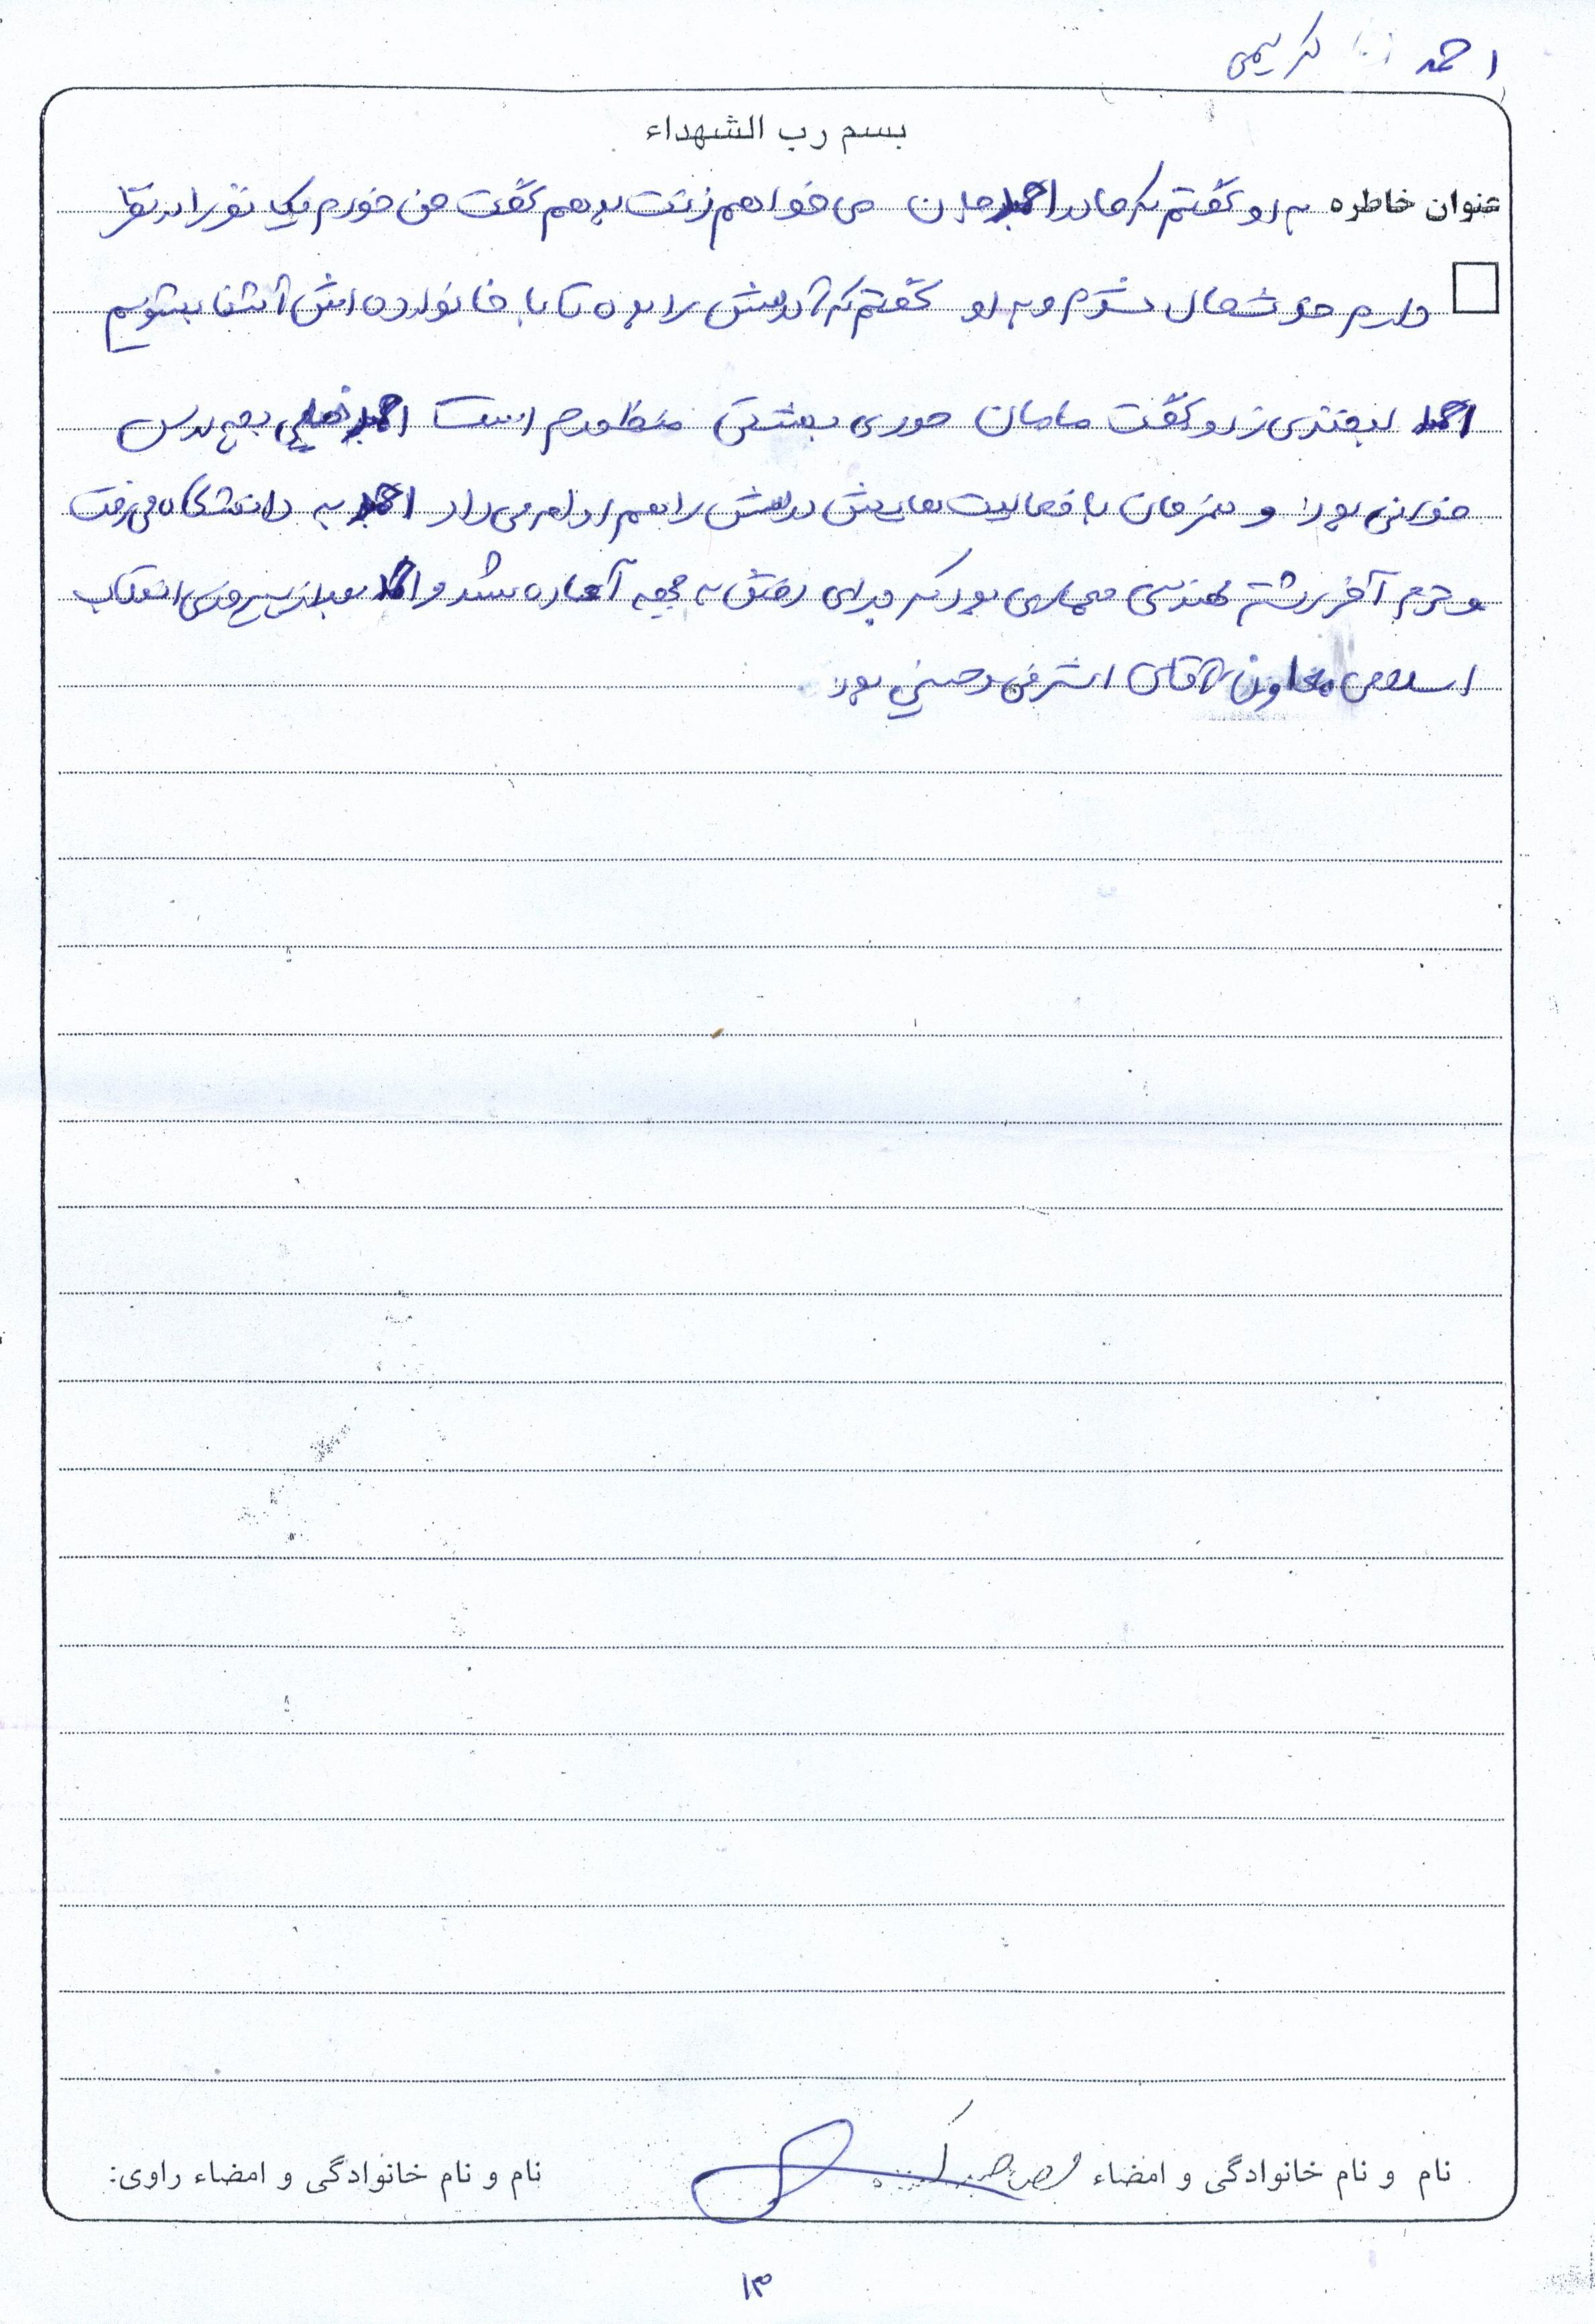 احمد کریمی
بسم رب الشهداء
عنوان خاطره به او گفتم که مادر احمد جان می خواهم زنت بدهم گفت من خودم یک نفر را در نظر
دارم خوشحال شدم و به او گفتم که آدرسش را بده تا با خانواده اش آشنا بشویم
احمد لبخندی زد و گفت مامان حوری بهشتی منظورم است احمد خیلی بچه درس
خوانی بود و همزمان با فعالیت هایش درسش را هم ادامه می داد احمد به دانشگاه می رفت
و ترم آخر رشته مهندسی معماری بود که برای رفتن به جبهه آماده شد و احمد بعد از پیروزی انقلاب
اسلامی معاون آقای اشرفی و حسینی بود
نام و نام خانوادگی و امضاء
نام و نام خانوادگی و امضاء راوی:
۱۳